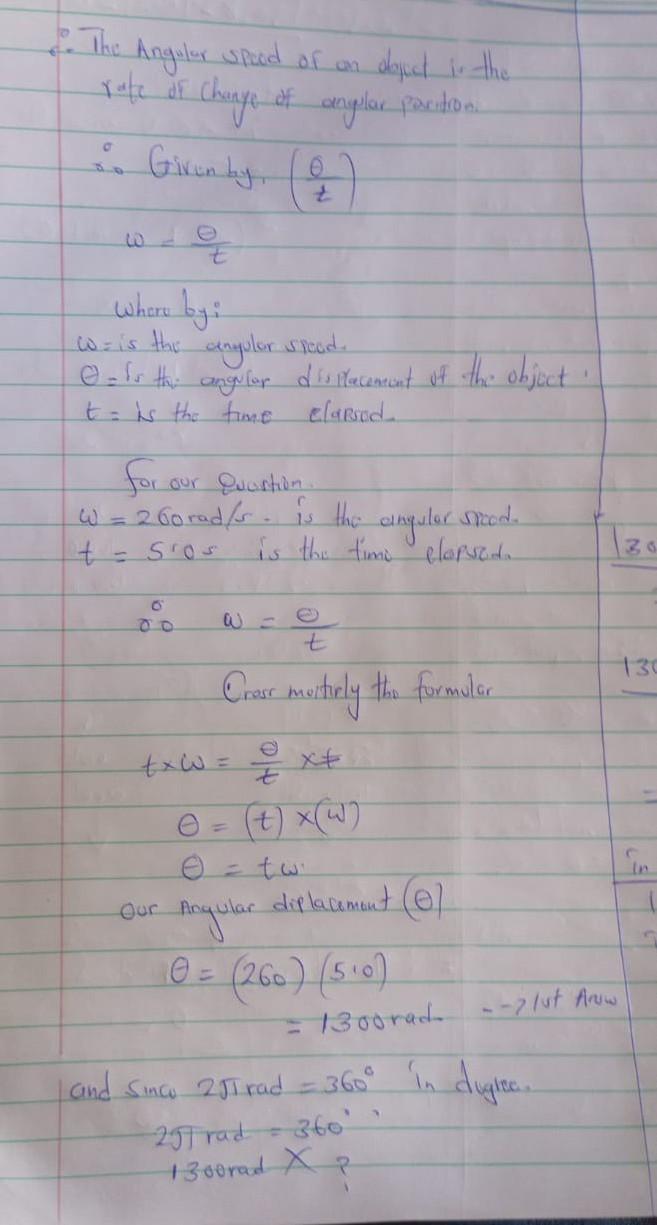 2. The Angular speed of an object is the
rate of change of angular position.
∴ Given by, (θ/t)
ω = θ/t
Where by:
ω = is the angular speed.
θ = is the angular displacement of the object.
t = is the time elapsed.
for our Question.
ω = 260 rad/s - is the angular speed.
t = 5.0 s is the time elapsed.
130
∴ ω = θ/t
130
Cross moltiply the formular
t×ω = θ/t ×t
=
θ = (t) ×(ω)
θ = tω.
in
Our Angular diplacement (θ)
θ = (260) (5.0)
= 1300 rad --> 1st Answ
and since 2π rad = 360° in degree.
2π rad = 360°
1300rad X ?